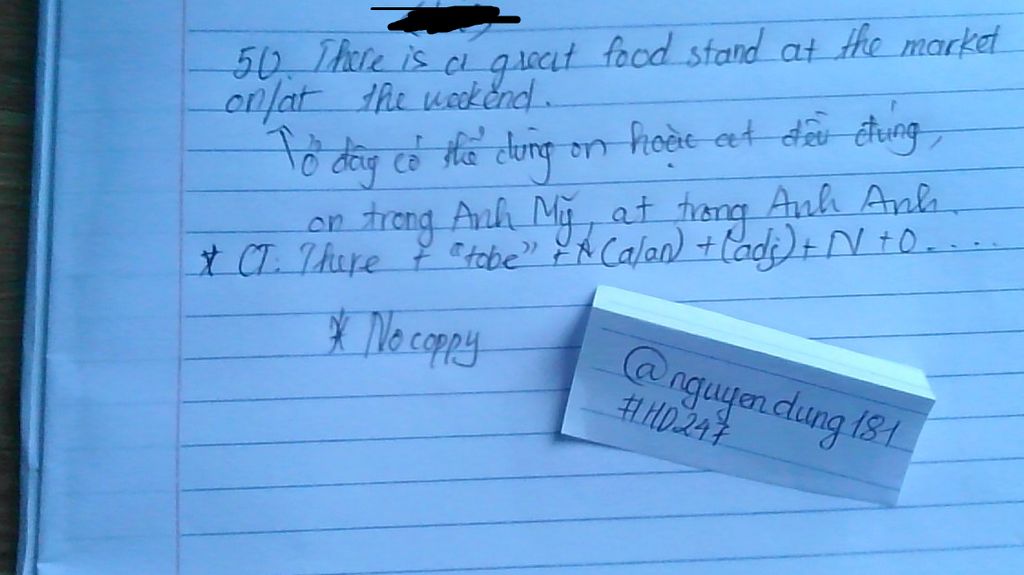 50. There is a great food stand at the market
on/at the weekend.
Ở đây có thể dùng on hoặc at đều đúng,
on trong Anh Mỹ, at trong Anh Anh.
* CT: There + "tobe" + (a/an) + (adj) + N + O....
* No coppy
@nguyendung181
#HD247